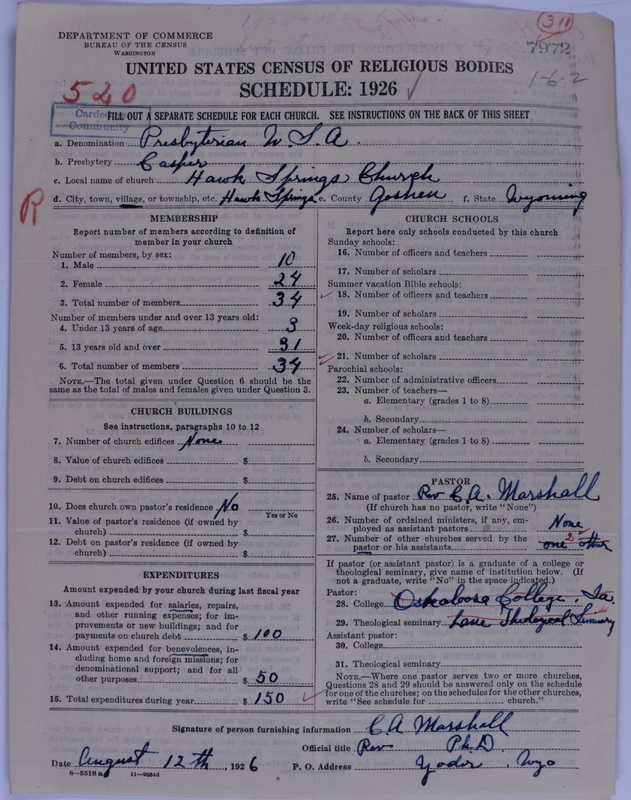 311
DEPARTMENT OF COMMERCE
BUREAU OF THE CENSUS
WASHINGTON
7972
1-6-2
UNITED STATES CENSUS OF RELIGIOUS BODIES
SCHEDULE: 1926
520
FILL OUT A SEPARATE SCHEDULE FOR EACH CHURCH. SEE INSTRUCTIONS ON THE BACK OF THIS SHEET
Community
a. Denomination Presbyterian U S A.
b. Presbytery Casper
c. Local name of church Hawk Springs Church
R
d. City, town, village, or township, etc. Hawk Springs e. County Goshen f. State Wyoming
MEMBERSHIP
Report number of members according to definition of
member in your church
Number of members, by sex:
1. Male 10
2. Female 24
3. Total number of members 34
Number of members under and over 13 years old:
4. Under 13 years of age 3
5. 13 years old and over 31
6. Total number of members 34
NOTE.—The total given under Question 6 should be
the same as the total of males and females given under Question 3.
CHURCH BUILDINGS
See instructions, paragraphs 10 to 12
7. Number of church edifices None
8. Value of church edifices $
9. Debt on church edifices $
10. Does church own pastor's residence No
Yes or No
11. Value of pastor's residence (if owned by
church) $
12. Debt on pastor's residence (if owned by
church) $
EXPENDITURES
Amount expended by your church during last fiscal year
13. Amount expended for salaries, repairs,
and other running expenses; for im-
provements or new buildings; and for
payments on church debt $ 100
14. Amount expended for benevolences, in-
cluding home and foreign missions; for
denominational support; and for all
other purposes $ 50
15. Total expenditures during year $ 150
CHURCH SCHOOLS
Report here only schools conducted by this church
Sunday schools:
16. Number of officers and teachers
17. Number of scholars
Summer vacation Bible schools:
18. Number of officers and teachers
19. Number of scholars
Week-day religious schools:
20. Number of officers and teachers
21. Number of scholars
Parochial schools:
22. Number of administrative officers
23. Number of teachers—
a. Elementary (grades 1 to 8)
b. Secondary
24. Number of scholars—
a. Elementary (grades 1 to 8)
b. Secondary
PASTOR
25. Name of pastor Rev C. A. Marshall
(If church has no pastor, write "None")
26. Number of ordained ministers, if any, em-
ployed as assistant pastors None
27. Number of other churches served by the
pastor or his assistants one 2 other
If pastor (or assistant pastor) is a graduate of a college or
theological seminary, give name of institution below. (If
not a graduate, write "No" in the space indicated.)
Pastor:
28. College Oskaloosa College, Ia.
29. Theological seminary Lane Theological Seminary
Assistant pastor:
30. College
31. Theological seminary
NOTE.—Where one pastor serves two or more churches,
Questions 28 and 29 should be answered only on the schedule
for one of the churches; on the schedules for the other churches,
write "See schedule for church."
Signature of person furnishing information C A Marshall
Official title Rev Ph.D.
Date August 12th, 1926 P. O. Address Yoder Wyo
8—5518 a 11—9554d